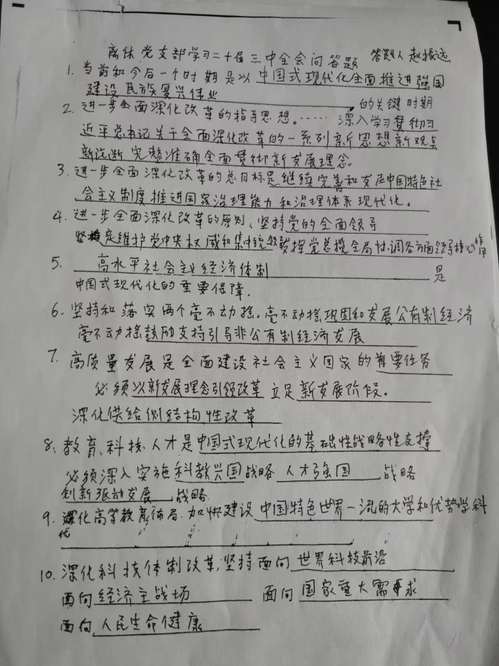 离休党支部学习二十届三中全会问答题 答题人 赵振远
1. 当前和今后一个时期是以中国式现代化全面推进强国
建设民族复兴伟业
的关键时期
2. 进一步全面深化改革的指导思想。…… 深入学习贯彻习
近平总书记关于全面深化改革的一系列新思想新观点
新论断 完整准确全面贯彻新发展理念。
3. 进一步全面深化改革的总目标是继续完善和发展中国特色社
会主义制度推进国家治理能力和治理体系现代化。
4. 进一步全面深化改革的原则、坚持党的全面领导
坚决维护党中央权威和集中统一领导发挥党总揽全局协调各方面领导核心作用
5. 高水平社会主义经济体制 是
中国式现代化的重要保障.
6. 坚持和落实两个毫不动摇. 毫不动摇巩固和发展公有制经济
毫不动摇鼓励支持引导非公有制经济发展
7. 高质量发展是全面建设社会主义国家的首要任务
必须以新发展理念引领改革 立足新发展阶段。
深化供给侧结构性改革
8. 教育、科技、人才是中国式现代化的基础性战略性支撑
必须深入实施科教兴国战略 人才强国 战略
创新驱动发展 战略
9. 深化高等教育布局. 加快建设中国特色世界一流的大学和优势学科
10. 深化科技体制改革, 坚持面向 世界科技前沿
面向经济主战场 面向国家重大需求
面向人民生命健康